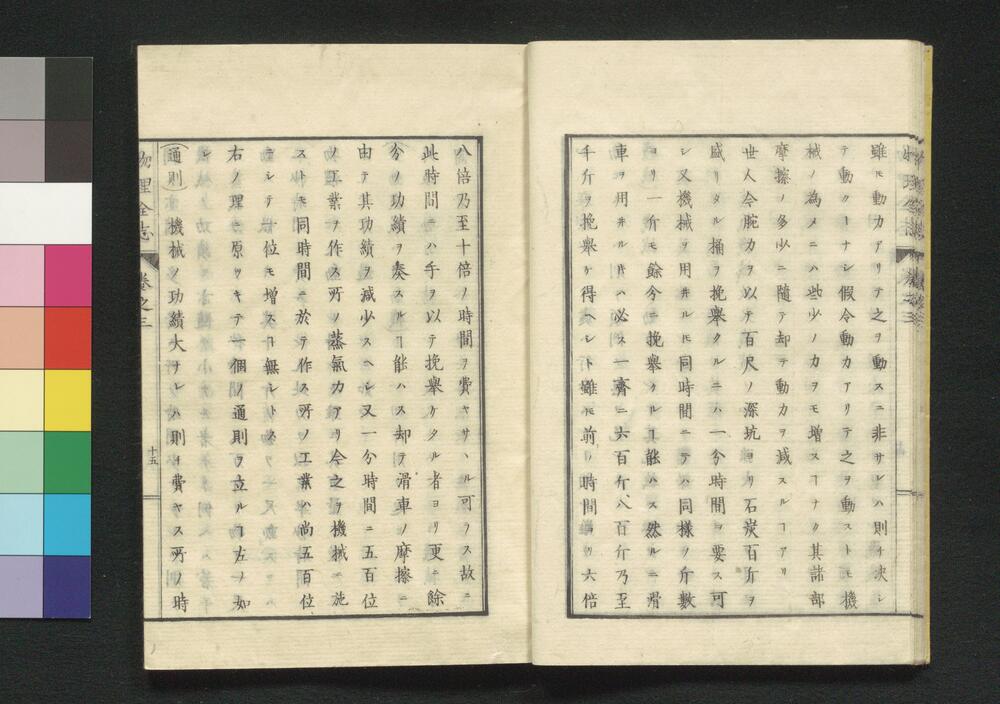 雖𪜈動力アリテ之ヲ動スニ非サレハ則チ决シ
テ動クヿナシ假令動力アリテ之ヲ動スト𪜈機
械ノ為メニハ些少ノ力ヲモ増スヿナク其諸部
摩擦ノ多少ニ隨テ却テ動力ヲ減スルヿアリ
世人今腕力ヲ以テ百尺ノ深坑ヨリ石炭百斤ヲ
盛リタル桶ヲ挽舉クルニハ一分時間ヲ要ス可
シ又機械ヲ用井ルモ同時間ニテハ同樣ノ斤數
ヨリ一斤モ餘分ニ挽舉クルヿ能ハス然ルニ滑
車ヲ用井ル𪜈ハ必ス一齊ニ六百斤八百斤乃至
千斤ヲ挽舉ケ得ヘシト雖𪜈前ノ時間ヨリ六倍
八倍乃至十倍ノ時間ヲ費ヤサヽル可ラス故ニ
此時間ニハ手ヲ以テ挽舉ケタル者ヨリ更ニ餘
分ノ功績ヲ奏スルヿ能ハス却テ滑車ノ摩擦ニ
由テ其功績ヲ減少スヘシ又一分時間ニ五百位
ノ工業ヲ作ス所ノ蒸氣力アリ今之ヲ機械ニ施
ストモ同時間ニ於テ作ス所ノ工業ハ尚五百位
ニシテ一位モ増スヿ無シトス
右ノ理ニ原ツキテ一個ノ通則ヲ立ルヿ左ノ如
シ
(通則) 機械ノ功績大ナレハ則チ費ヤス所ノ時
物理全志 卷之三 十五